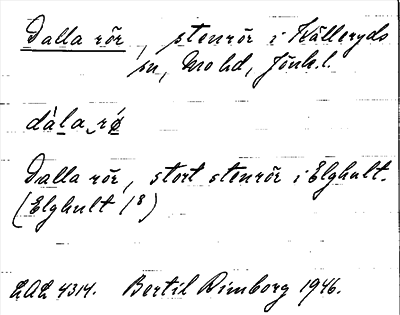 Dalla rör, stenrör i Kålleryds
sn, Mo hd, Jönk. l.
dàla rǿ
Dalla rör, stort stenrör i Elghult.
(Elghult 1⁸)
LAL 4314. Bertil Rimborg 1946.